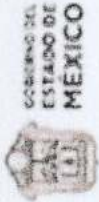 GOBIERNO DEL
ESTADO DE
MÉXICO